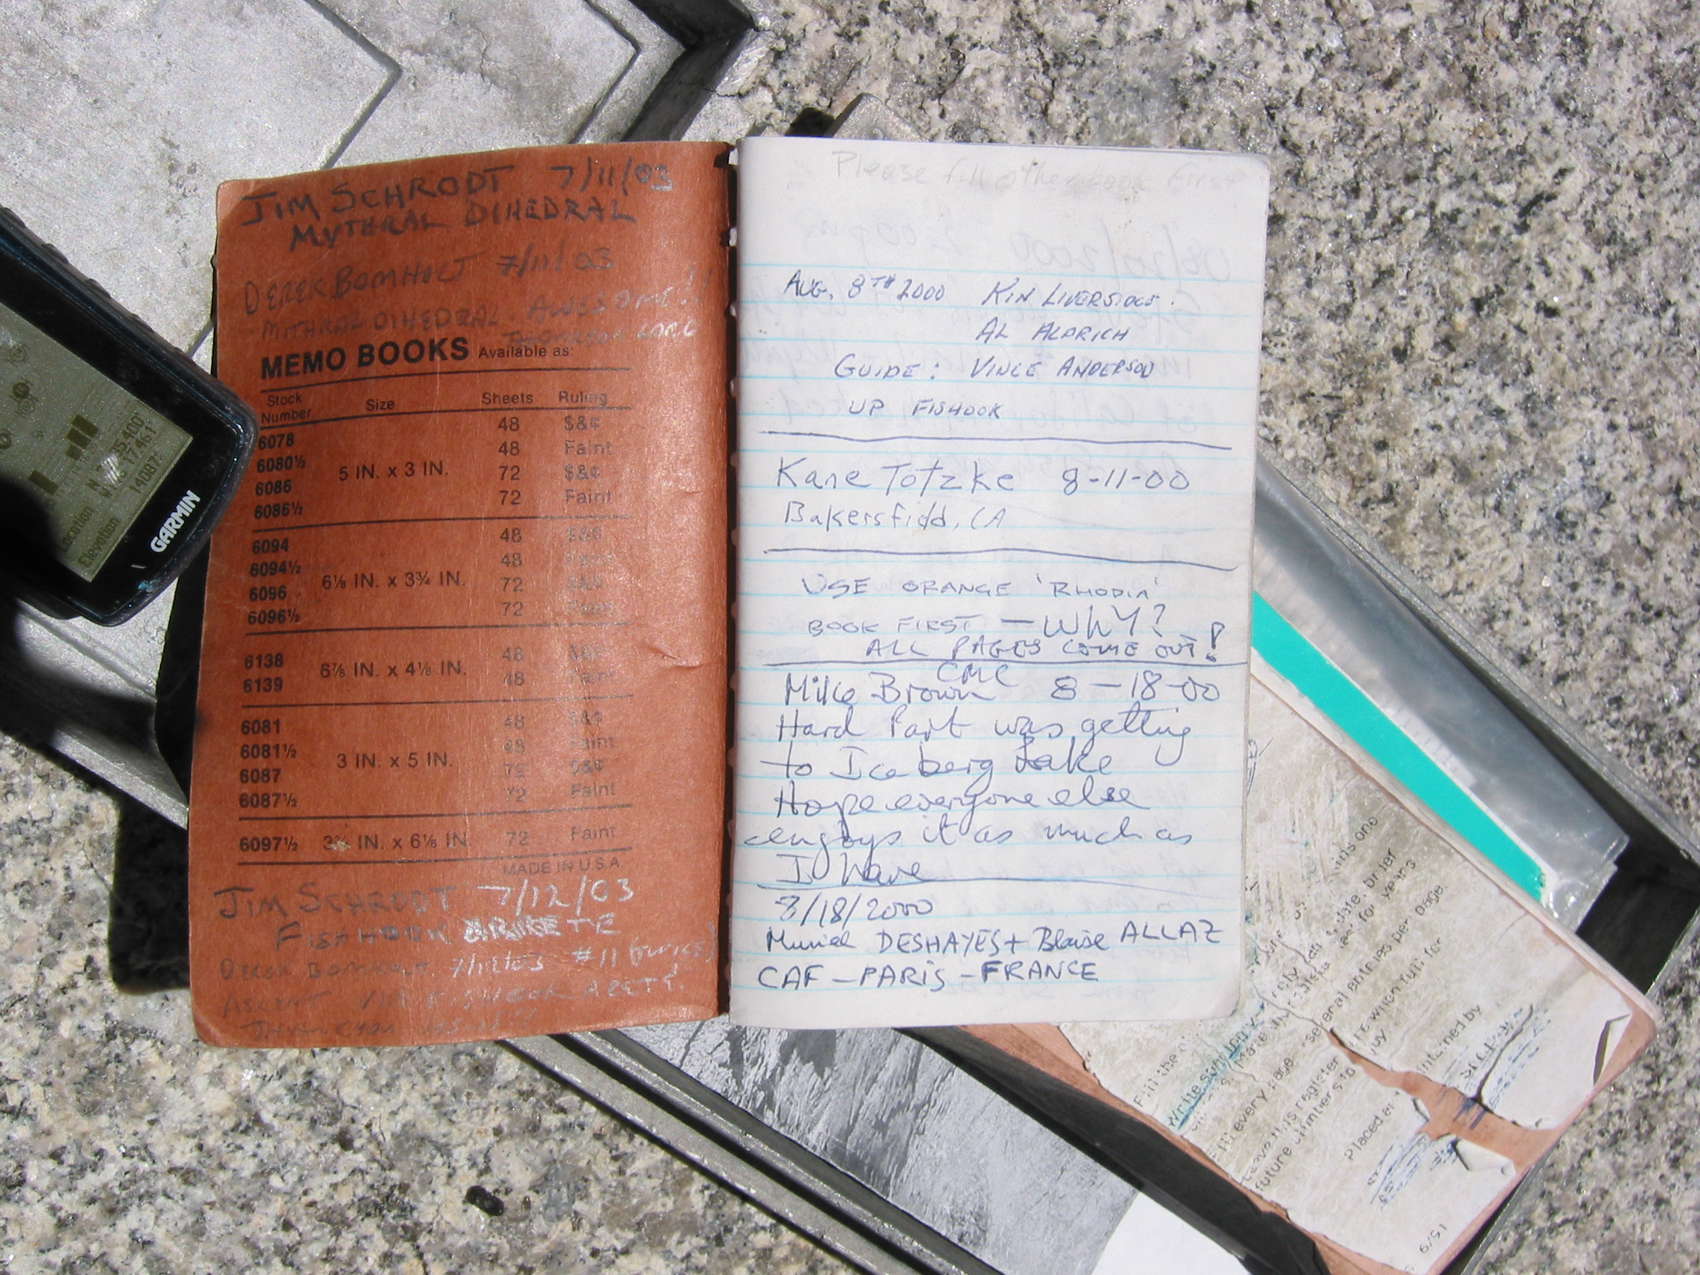 JIM SCHRODT 7/11/03
MYTHRAL DIHEDRAL
DEREK BOMHOLT 7/11/03
MITHRAL DIHEDRAL AWESOME!
MEMO BOOKS Available as:
Stock Number Size Sheets Ruling
6078 48 $&¢
6080½ 48 Faint
5 IN. x 3 IN.
6086 72 $&¢
6086½ 72 Faint
6094 48 $&¢
6094½ 48 Faint
6⅛ IN. x 3¾ IN.
6096 72 $&¢
6096½ 72 Faint
6138 48 $&¢
6⅞ IN. x 4⅛ IN.
6139 48 Faint
6081 48 $&¢
6081½ 48 Faint
3 IN. x 5 IN.
6087 72 $&¢
6087½ 72 Faint
6097½ 3¾ IN. x 6⅛ IN. 72 Faint
MADE IN U.S.A.
JIM SCHRODT 7/12/03
FISHHOOK ARRETE
DEREK BOMHOLT 7/12/03 #11
ASCENT VIA FISHHOOK ARETE.
Please fill other book first
AUG, 8TH 2000 KIN LIVERSIDGE.
AL ALDRICH
GUIDE: VINCE ANDERSON
UP FISHOOK
Kane Totzke 8-11-00
Bakersfield, CA
USE ORANGE 'RHODIA'
BOOK FIRST — WHY?
ALL PAGES COME OUT!
CMC
Mike Brown 8-18-00
Hard Part was getting
to Iceberg Lake
Hope everyone else
enjoys it as much as
I Have
8/18/2000
Muriel DESHAYES + Blaise ALLAZ
CAF-PARIS-FRANCE
GARMIN
Elevation 14087
Fill the
write small
Fill every page - several entries per page.
Leave this register
future summiters to
Placed